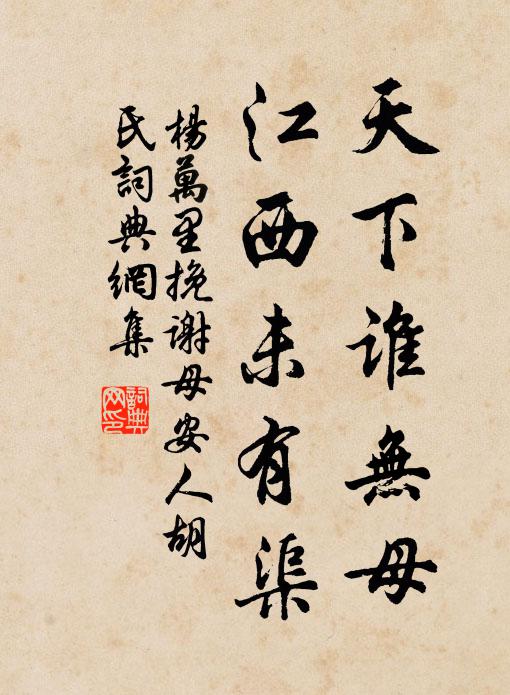 天下誰無母
江西未有渠
楊萬里挽謝母安人胡
氏詞典網集
詞典网印